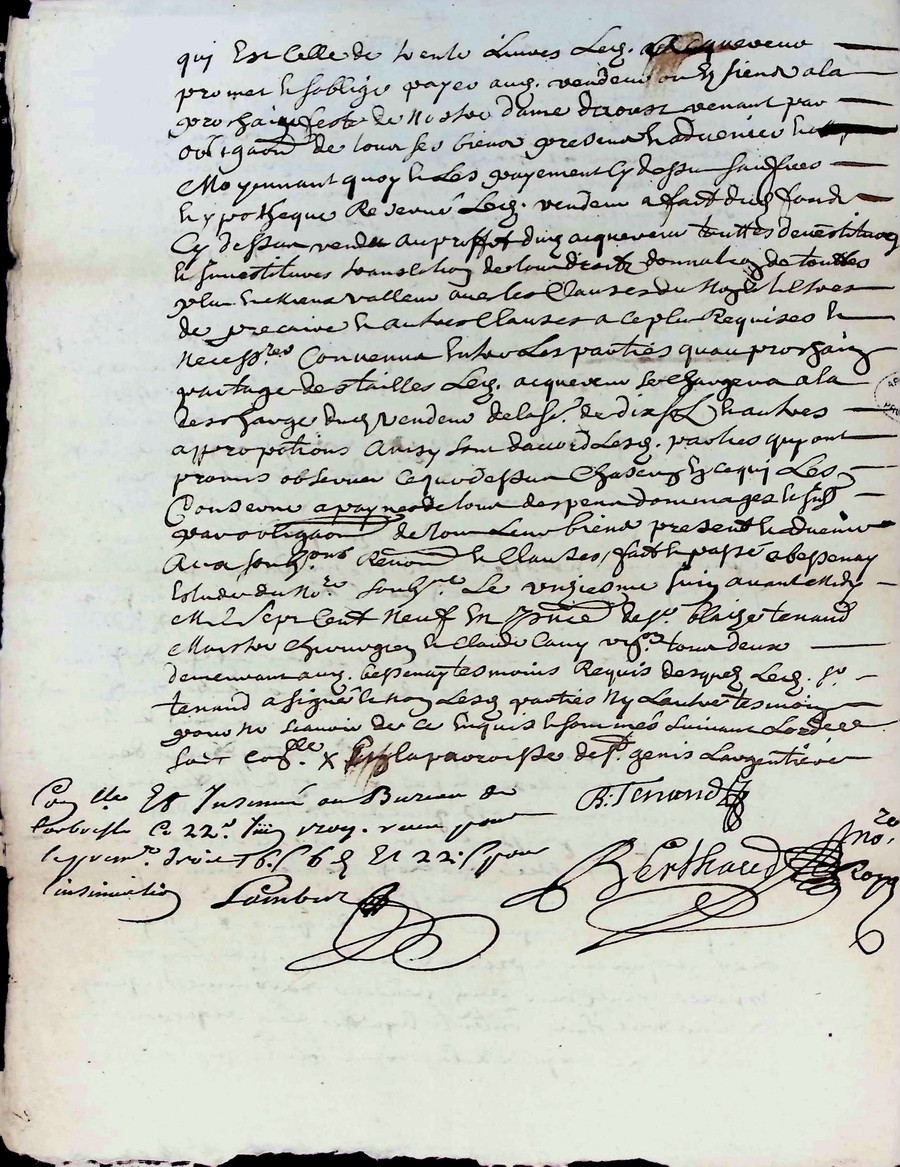 qui Est Celle de trente Livres Led. acquereur
promet et soblige payer aud. vendeur ou Es siens a la
prochaine feste de Nostre dame daoust venant par
obligaon de tous ses biens presents et aduenir et
Moyennant quoy et Les payement Cy dessus sauf ses
hypotheque Reserué Led. vendeur a fait dud. fonds
Cy dessus vendu au proffit dud. acquereur touttes deuestitures
et Inuestitures translation de tous droits donnation de touttes
plus et mieux valleur auec les Clauses du
de precaire et autres Clauses a ce plus Requises et
Necessres Convenu Entre Les parties quau prochain
partage des tailles Led. acquereur se Chargera a la
descharge dud. vendeur de la se. de dix et autres
Ainsy sont daccord Lesd. parties quy ont
promis obseruer ce que dessus Chascung En ce qui Les
Conserne a paynes de tous despens dommages et
par obligaon de tous Leur biens presents et aduenir
Renon et Clauses, fait et passé a bessenay
Estude du Nore. soubsne. Le Juin auant Midy
Mil Sept Cent Neuf En pnce de sr. blaize tenaud
Maistre Chirurgien et Claude Cany tous deux
demeurant aud. bessenay tesmoins Requis desquels Led. sr.
tenaud a signé et non Lesd. parties Ny Lautre tesmoin
pour ne scauoir de ce Enquis et sommés suiuant Lordce
X En la parroisse de St. genis Largentiere
Conlle Et Insinué au Bureau de
Larbresle Ce 22e. Juin 1709. receu pour
le premr. droit 16 s 6 d Et 22 s pour
linsinuation Lambert
B: Tenaud
Berthaud
nore.
Royal